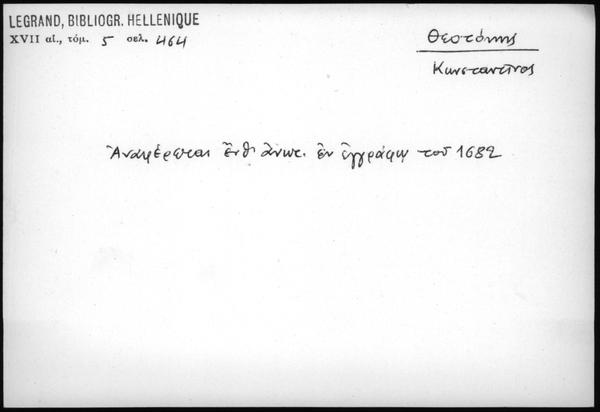 LEGRAND, BIBLIOGR. HELLENIQUE
XVII αἰ., τόμ. 5 σελ. 464
Θεοτόκης
Κωνσταντῖνος
Ἀναφέρεται ἔνθ' ἀνωτ. ἐν ἐγγράφῳ τοῦ 1682